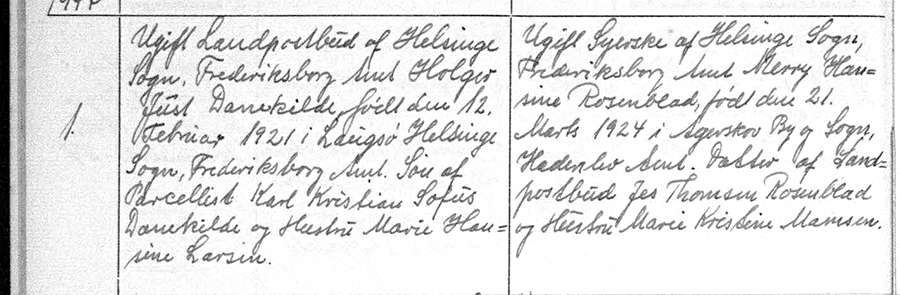 1.
Ugift Landpostbud af Helsinge
Sogn, Frederiksborg Amt Holger
Just Danekilde, født den 12.
Februar 1921 i Laugø Helsinge
Sogn, Frederiksborg Amt. Søn af
Parcellist Karl Kristian Sofus
Danekilde og Hustru Marie Han=
sine Larsen.
Ugift Syerske af Helsinge Sogn,
Frederiksborg Amt Merry Han=
sine Rosenblad, født den 21.
Marts 1924 i Agerskov By og Sogn,
Haderslev Amt. Datter af Land=
postbud Jes Thomsen Rosenblad
og Hustru Marie Kristine Mamsen.